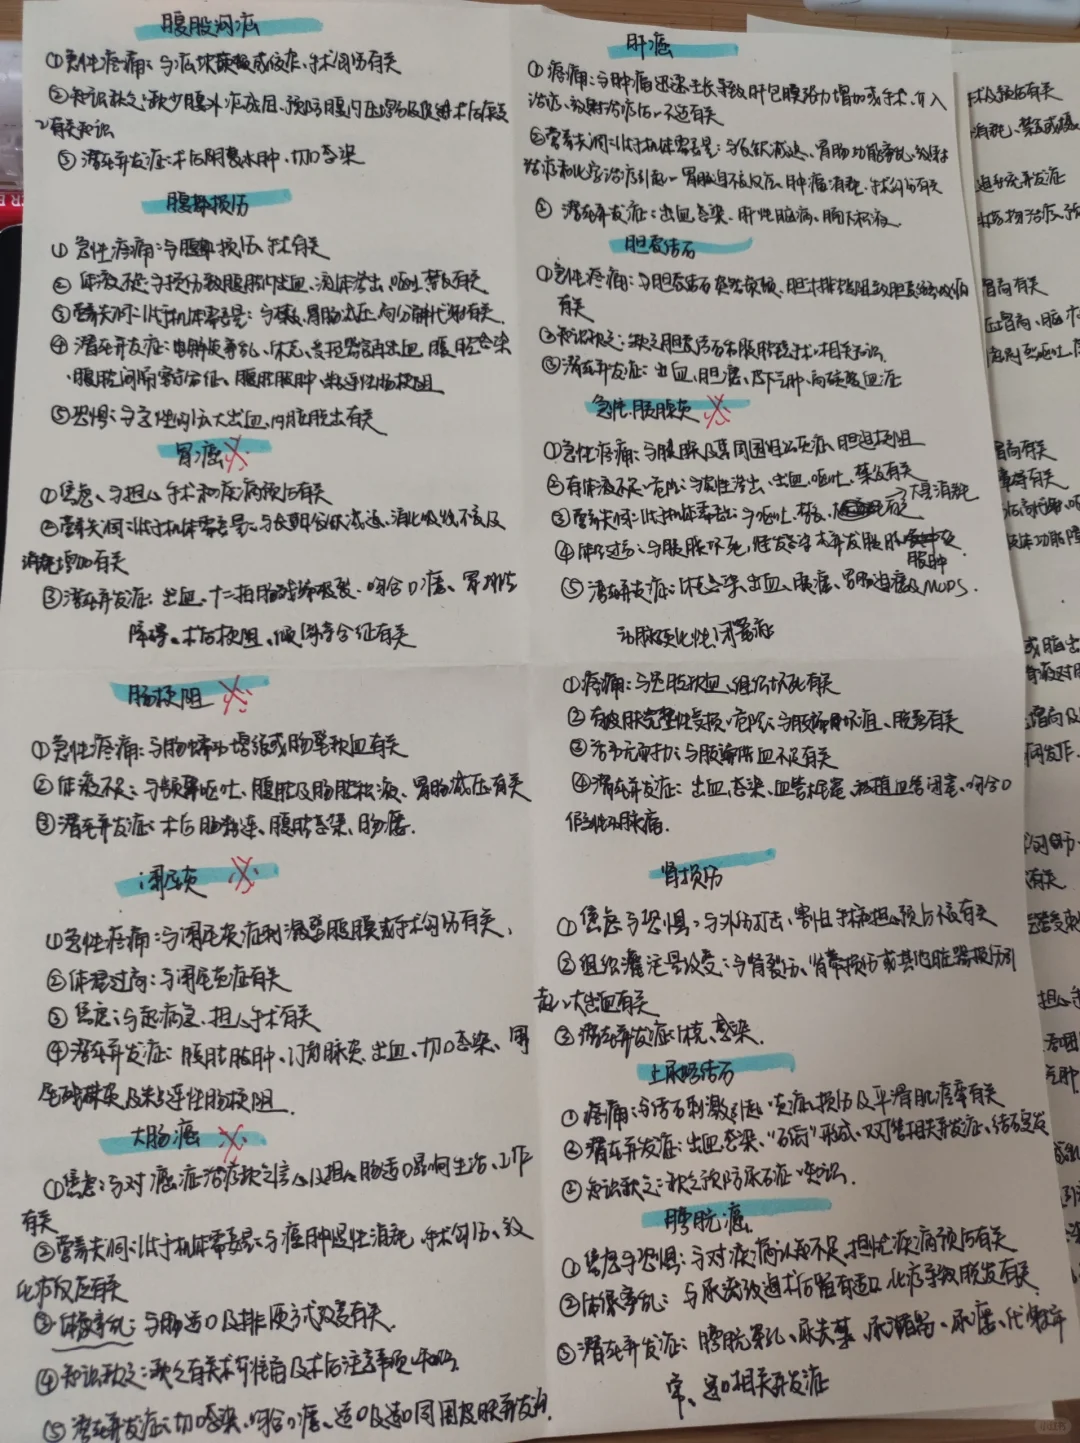 腹股沟疝
①急性疼痛：与疝块嵌顿或绞窄、手术创伤有关
②知识缺乏：缺少腹外疝成因、预防腹内压增高及促进术后康复
有关知识
③潜在并发症：术后阴囊水肿、切口感染
腹部损伤
①急性疼痛：与腹部损伤、手术有关
②体液不足：与损伤致腹腔内出血、液体渗出、呕吐、禁食有关
③营养失调：低于机体需要量：与禁食、胃肠减压、高分解代谢有关
④潜在并发症：电解质紊乱、休克、受损器官再出血、腹腔感染
、腹腔间隔室综合征、腹腔脓肿、粘连性肠梗阻
⑤恐惧：与急性创伤、大出血、内脏脱出有关
胃癌
①焦虑、与担心手术和疾病预后有关
②营养失调：低于机体需要量：与长期食欲减退、消化吸收不良及
消耗增加有关
③潜在并发症：出血、十二指肠残端破裂、吻合口瘘、胃排空
障碍、术后梗阻、倾倒综合征有关
肠梗阻
①急性疼痛：与肠蠕动增强或肠壁缺血有关
②体液不足：与频繁呕吐、腹腔及肠腔积液、胃肠减压有关
③潜在并发症：术后肠粘连、腹腔感染、肠瘘.
阑尾炎
①急性疼痛：与阑尾炎症刺激壁腹膜或手术创伤有关、
②体温过高：与阑尾炎症有关
③焦虑：与起病急、担心手术有关
④潜在并发症：腹腔脓肿、门静脉炎、出血、切口感染、阑
尾残株炎及粘连性肠梗阻.
大肠癌
①焦虑：与对癌症治疗缺乏信心及担心肠造口影响生活、工作
有关
②营养失调：低于机体需要量：与癌肿慢性消耗、手术创伤、放
化疗反应有关
③体像紊乱：与肠造口及排便方式改变有关.
④知识缺乏：缺乏有关术前准备及术后注意事项知识.
⑤潜在并发症：切口感染、吻合口瘘、造口及造口周围皮肤并发症.
肝癌
①疼痛：与肿瘤迅速生长导致肝包膜张力增加或手术、介入
治疗、放射治疗后不适有关
②营养失调：低于机体需要量：与食欲减退、胃肠功能紊乱、放射
治疗和化学治疗引起胃肠道不良反应、肿瘤消耗、手术创伤有关
③潜在并发症：出血、感染、肝性脑病、膈下积液.
胆囊结石
①急性疼痛：与胆囊结石突然嵌顿、胆汁排空受阻致胆囊强烈收缩
有关
②知识缺乏：缺乏胆囊结石和腹腔镜手术相关知识.
③潜在并发症：出血、胆瘘、皮下气肿、高碳酸血症
急性胰腺炎
①急性疼痛：与胰腺及其周围组织炎症、胆道梗阻
②有体液不足危险：与炎性渗出、出血、呕吐、禁食有关
③营养失调：低于机体需要量：与呕吐、禁食、大量消耗有关
④体温过高：与胰腺坏死，继发感染或并发胰腺
脓肿
⑤潜在并发症：休克、感染、出血、胰瘘、胃肠道瘘及MODS.
动脉硬化性闭塞症
①疼痛：与患肢缺血、组织坏死有关
②有皮肤完整性受损危险：与肢端坏疽、脱落有关
③活动无耐力：与肢端供血不足有关
④潜在并发症：出血、感染、血管栓塞、移植血管闭塞、吻合口
假性动脉瘤.
肾损伤
①焦虑与恐惧：与外伤打击、害怕手术和担心预后不良有关
②组织灌注量改变：与肾裂伤、肾蒂损伤或其他脏器损伤引
起大出血有关
③潜在并发症：休克、感染.
上尿路结石
①疼痛：与结石刺激引起炎症、损伤及平滑肌痉挛有关
②潜在并发症：出血、感染、“石街”形成、双J管相关并发症、结石复发
③知识缺乏：缺乏预防尿石症知识.
膀胱癌
①焦虑与恐惧：与对疾病认知不足、担忧疾病预后有关
②体像紊乱：与尿流改道术后留有造口、化疗导致脱发有关.
③潜在并发症：膀胱穿孔、尿失禁、尿潴留、尿瘘、代谢异
常、造口相关并发症